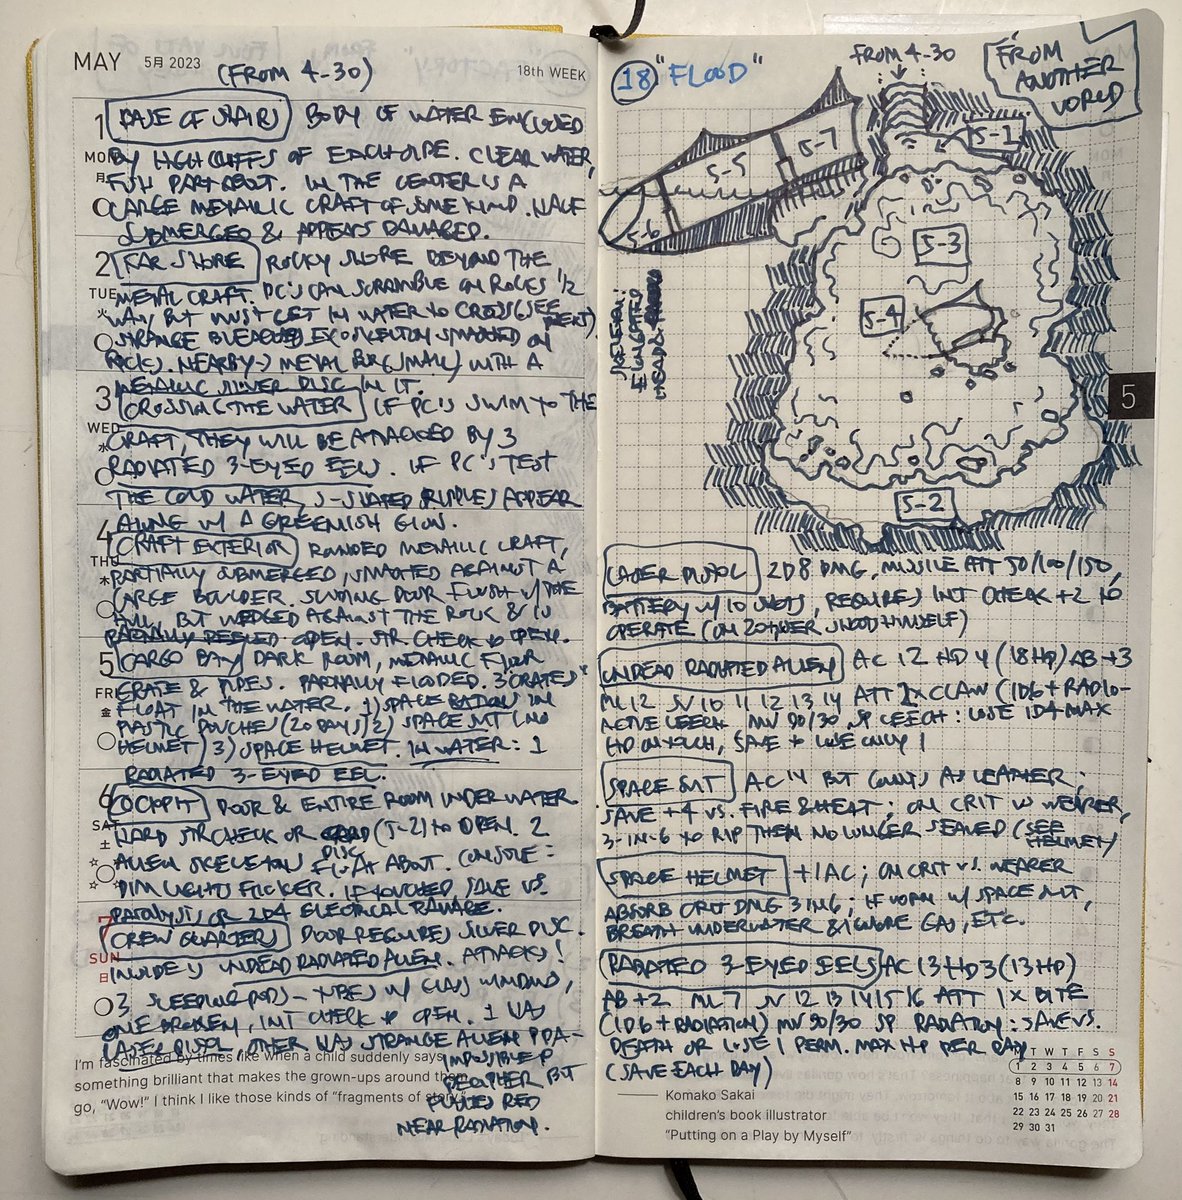 MAY 5月 2023
(FROM 4-30)
18th WEEK
1 BASE OF STAIRS BODY OF WATER ENCLOSED
MON BY HIGH CLIFFS OF EACH SIDE. CLEAR WATER,
月 FISH DART ABOUT. IN THE CENTER IS A
LARGE METALLIC CRAFT OF SOME KIND. HALF
SUBMERGED & APPEARS DAMAGED.
2 FAR SHORE ROCKY SHORE BEYOND THE
TUE METAL CRAFT. PC'S CAN SCRAMBLE ON ROCKS 1/2
火 WAY BUT MUST GET IN WATER TO CROSS (SEE NEXT)
STRANGE BLEACHED EXOSKELETON SMASHED ON
ROCKS. NEARBY → METAL BOX (SMALL) WITH A
METALLIC SILVER DISC IN IT.
3 CROSSING THE WATER IF PC'S SWIM TO THE
WED CRAFT, THEY WILL BE ATTACKED BY 3
水 RADIATED 3-EYED EELS. IF PC'S TEST
THE COLD WATER, S-SHAPED RIPPLES APPEAR
ALONG W/ A GREENISH GLOW.
4 CRAFT EXTERIOR ROUNDED METALLIC CRAFT,
THU PARTIALLY SUBMERGED, SMASHED AGAINST A
木 LARGE BOULDER. SLIDING DOOR FLUSH W/ THE
HULL, BUT WEDGED AGAINST THE ROCK & IS
PARTIALLY PEELED OPEN. STR CHECK TO OPEN.
5 CARGO BAY DARK ROOM, METALLIC FLOOR
FRI GRATE & PIPES. PARTIALLY FLOODED. 3 CRATES
金 FLOAT IN THE WATER. 1) SPACE RATIONS IN
PLASTIC POUCHES (20 DAYS) 2) SPACE SUIT (NO
HELMET) 3) SPACE HELMET. IN WATER: 1
RADIATED 3-EYED EEL.
6 COCKPIT DOOR & ENTIRE ROOM UNDER WATER.
SAT HARD STR CHECK OR DISC (5-2) TO OPEN. 2
土 ALIEN SKELETONS FLOAT ABOUT. CONSOLE:
DIM LIGHTS FLICKER. IF TOUCHED, SAVE VS.
PARALYSIS OR 2D4 ELECTRICAL DAMAGE.
7 CREW QUARTERS DOOR REQUIRES SILVER DISC.
SUN INSIDE IS UNDEAD RADIATED ALIEN. ATTACKS!
日 3 SLEEPING PODS – TUBES W/ GLASS WINDOWS,
ONE BROKEN, INT CHECK TO OPEN. 1 HAS
LASER PISTOL, OTHER HAS STRANGE ALIEN PDA-
IMPOSSIBLE TO
DECIPHER BUT
PULSES RED
NEAR RADIATION.
I'm fascinated by times like when a child suddenly says
something brilliant that makes the grown-ups around them
go, "Wow!" I think I like those kinds of "fragments of story."
18 "FLOOD"
FROM 4-30
FROM
ANOTHER
WORLD
5-1
5-7
5-5
5-6
5-3
5-4
5-2
SKELETON:
ELONGATED
HEADS
5
LASER PISTOL 2D8 DMG, MISSILE ATT 50/100/150,
BATTERY W/ 10 SHOTS, REQUIRES INT CHECK +2 TO
OPERATE (ON 20 USER SHOOTS HIMSELF)
UNDEAD RADIATED ALIEN AC 12 HD 4 (18 HP) AB +3
ML 12 SV 10 11 12 13 14 ATT 2X CLAW (1D6 + RADIO-
ACTIVE LEECH MV 90/30 SP LEECH: LOSE 1D4 MAX
HP ON TOUCH, SAVE TO LOSE ONLY 1
SPACE SUIT AC 14 BUT COUNTS AS LEATHER;
SAVE +4 VS. FIRE & HEAT; ON CRIT VS WEARER,
3-IN-6 TO RIP THEN NO LONGER SEALED (SEE HELMET)
SPACE HELMET +1 AC; ON CRIT VS. WEARER
ABSORB CRIT DMG 3 IN 6; IF WORN W/ SPACE SUIT,
BREATH UNDERWATER & IGNORE GAS, ETC.
RADIATED 3-EYED EELS AC 13 HD 3 (13 HP)
AB +2 ML 7 SV 12 13 14 15 16 ATT 1X BITE
(1D6 + RADIATION) MV 90/30 SP RADIATION: SAVE VS.
DEATH OR LOSE 1 PERM. MAX HP PER DAY
(SAVE EACH DAY)
Komako Sakai
children's book illustrator
"Putting on a Play by Myself"
M T W T F S S
1 2 3 4 5 6 7
8 9 10 11 12 13 14
15 16 17 18 19 20 21
22 23 24 25 26 27 28
29 30 31